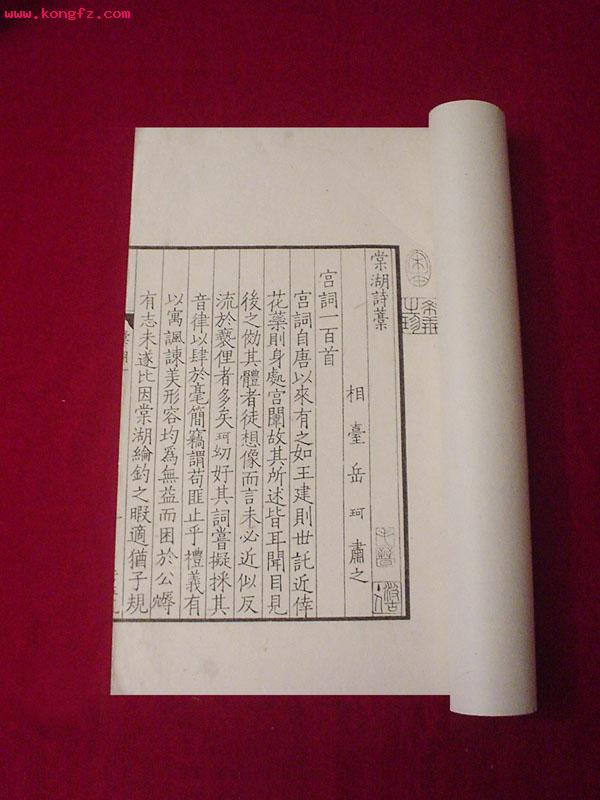 www.kongfz.com
棠湖詩藁
相臺岳珂肅之
宮詞一百首
宮詞自唐以來有之如王建則世託近倖
花蘂則身處宮闈故其所述皆耳聞目見
後之傚其體者徒想像而言未必近似反
流於褻俚者多矣珂幼好其詞嘗擬採其
音律以肆於毫簡竊謂苟匪止乎禮義有
以寓諷諫美形容均爲無益而困於公
有志未遂比因棠湖綸釣之暇適猶子規